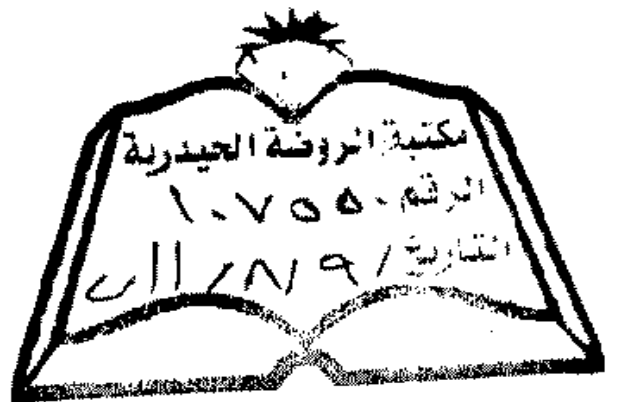 مكتبة الروضة الحيدرية
الرقم ١٠٧٥٥٠
التاريخ